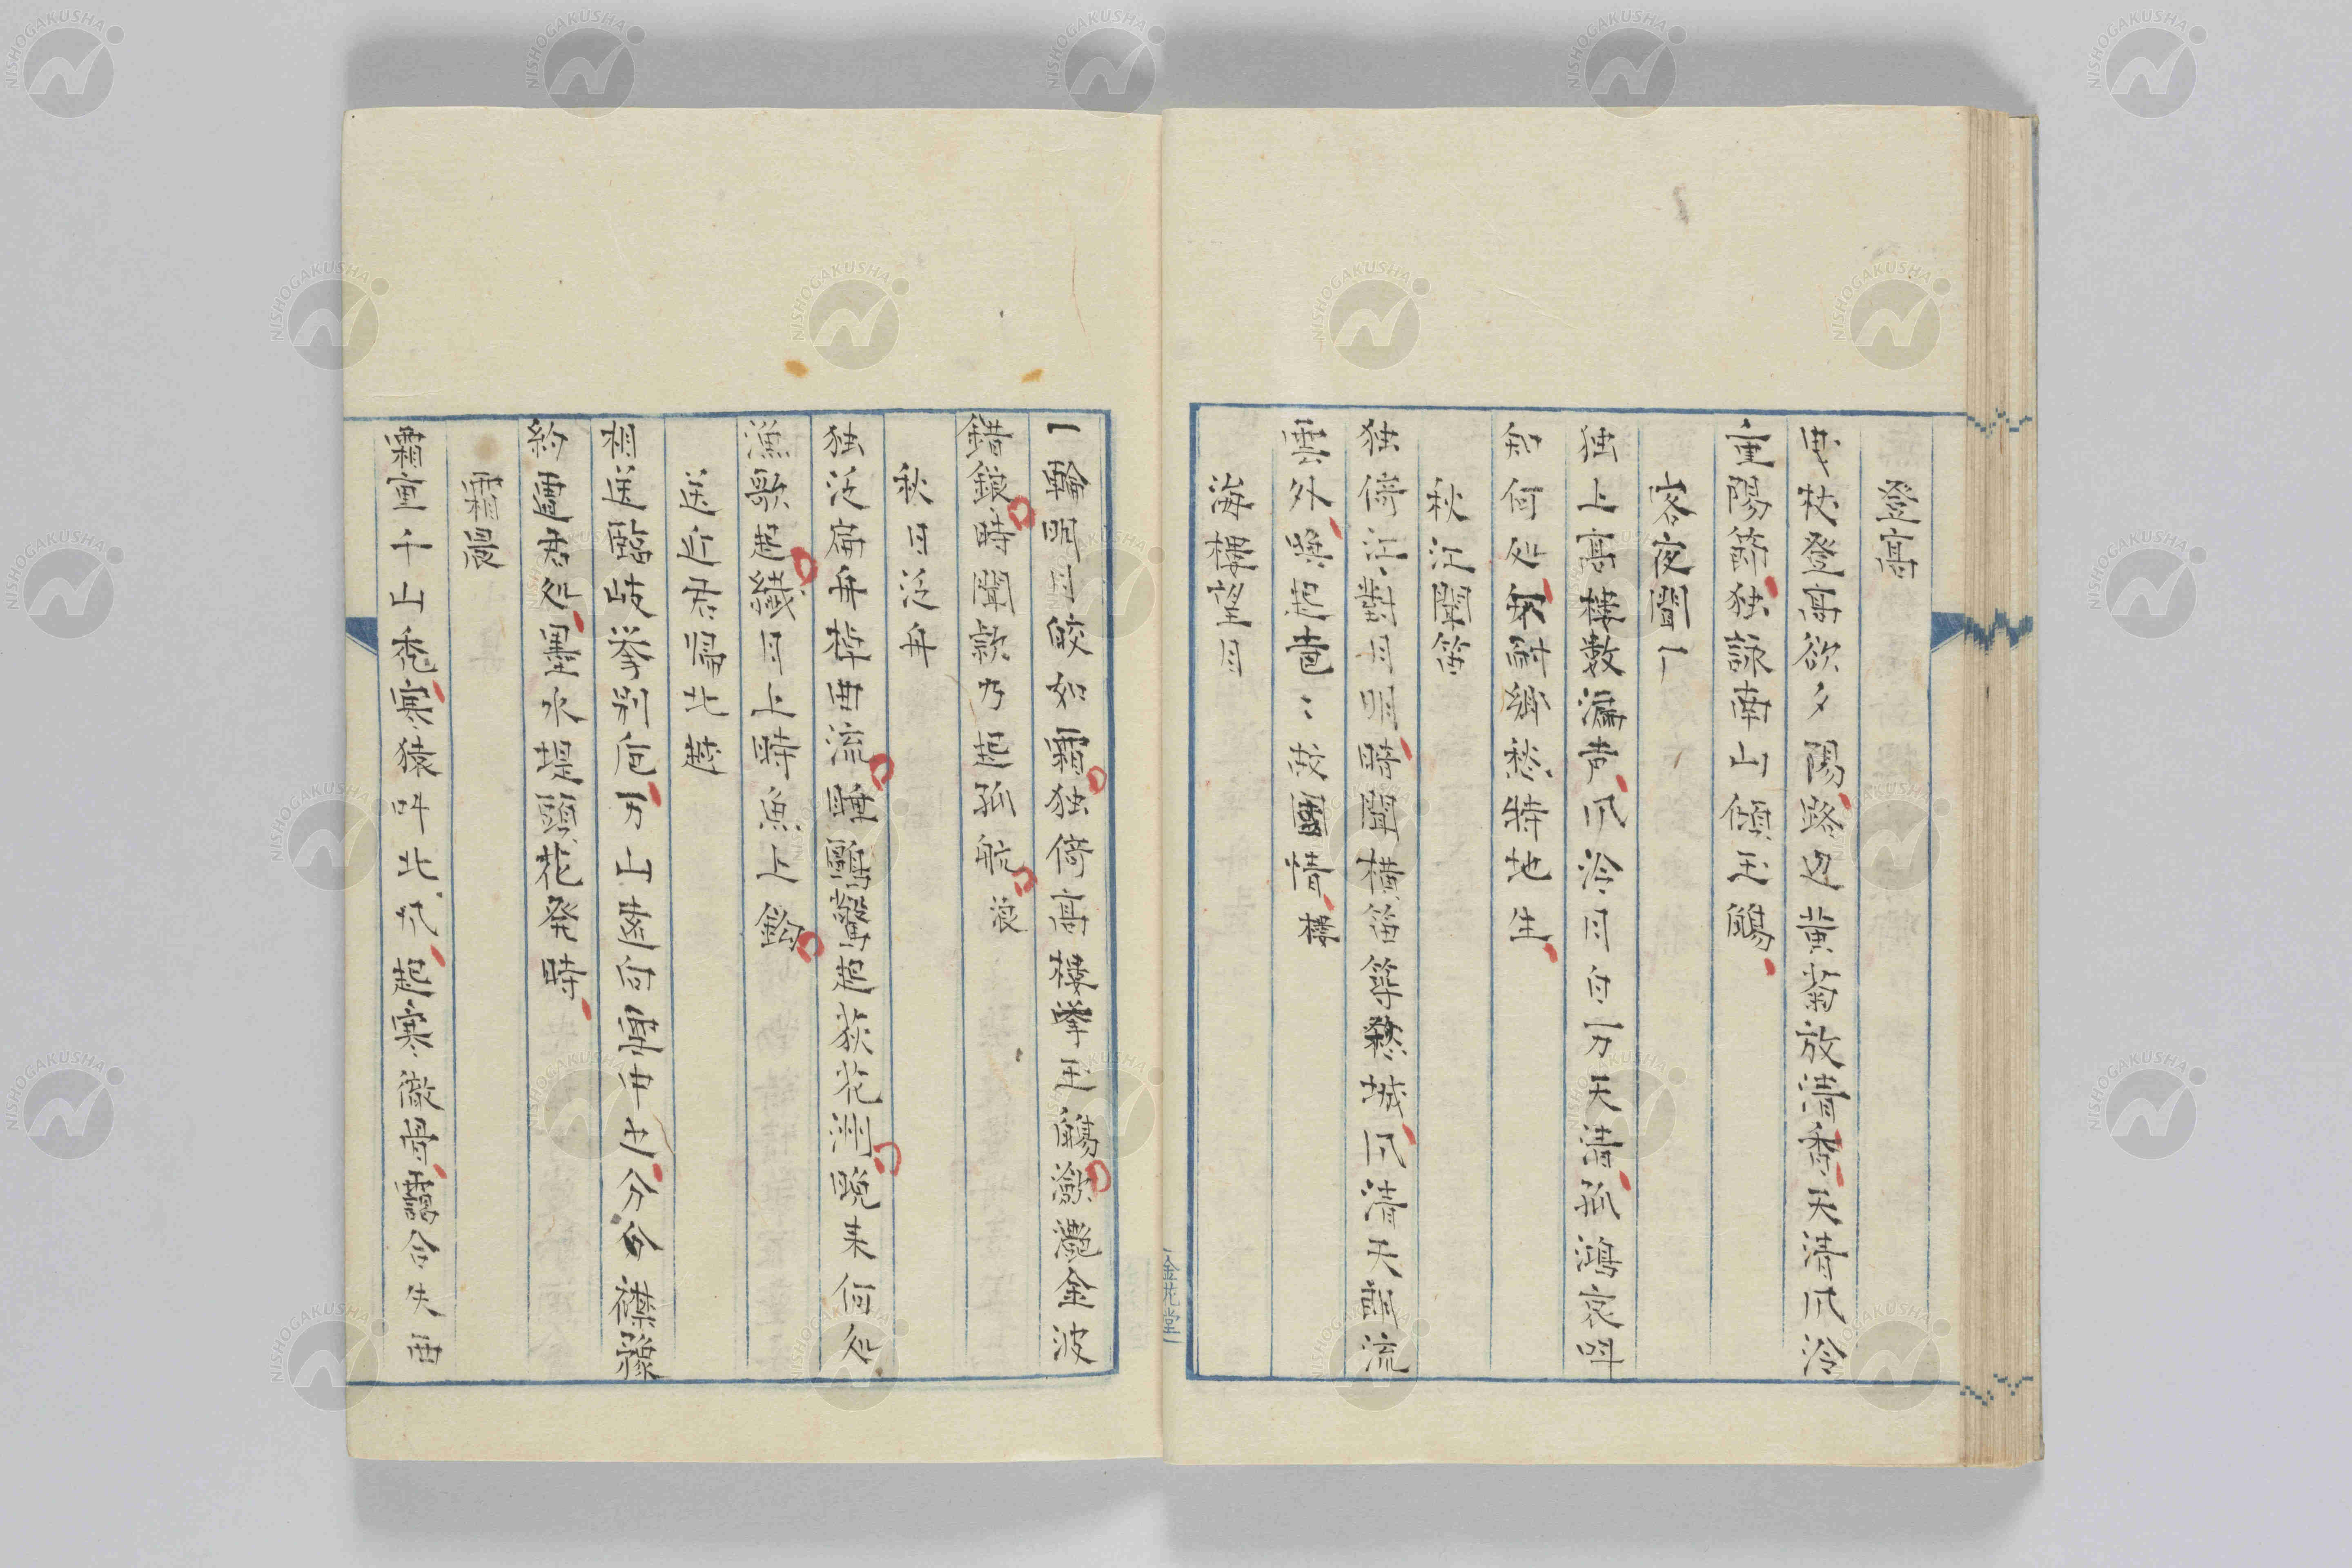 登高
曳杖登高欲夕陽路辺黄菊放清香天清爪冷
重陽節独詠南山傾玉觴
客夜聞
独上高楼数漏声爪冷月白一方天清孤鴻哀叫
知何処耐郷愁特地生
秋江聞笛
独倚江対月明暗聞横笛等愁城爪清天静流
雲外喚起耄〻故園情楼
海楼望月
一輪明月皎如霜独倚高楼挙玉觴瀲灔金波
錯銀時聞款乃起孤航浪
秋月泛舟
独泛扁舟棹曲流睡鷗驚起荻花洲晩来何処
漁歌起纖月上時魚上鈎
送辻君帰北越
相送臨岐挙別巵万山遥向馬中之分分襟豫
約遭君処墨水堤頭花発時
霜晨
霜重千山禿寒猿叫北爪起寒徹骨靄合失西
金花堂
NISHOGAKUSHA